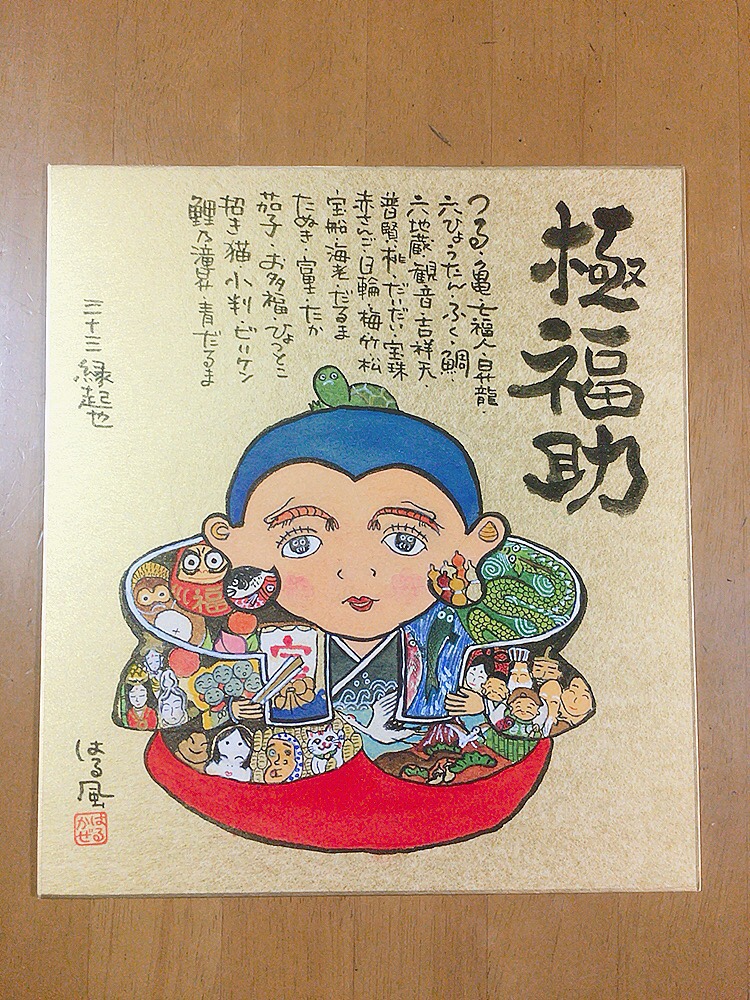 極福助
つる・亀・七福人・昇龍・
六ひょうたん・ふく・鯛・
六地蔵・観音・吉祥天・
普賢・桃・だいだい・宝珠
赤さんご・日輪・梅竹松
宝船・海老・だるま
たぬき・富士・たか
茄子・お多福・ひょっとこ
招き猫・小判・ビリケン
鯉乃滝昇・青だるま
三十三縁起也
福
宝
はる風
はる
かぜ